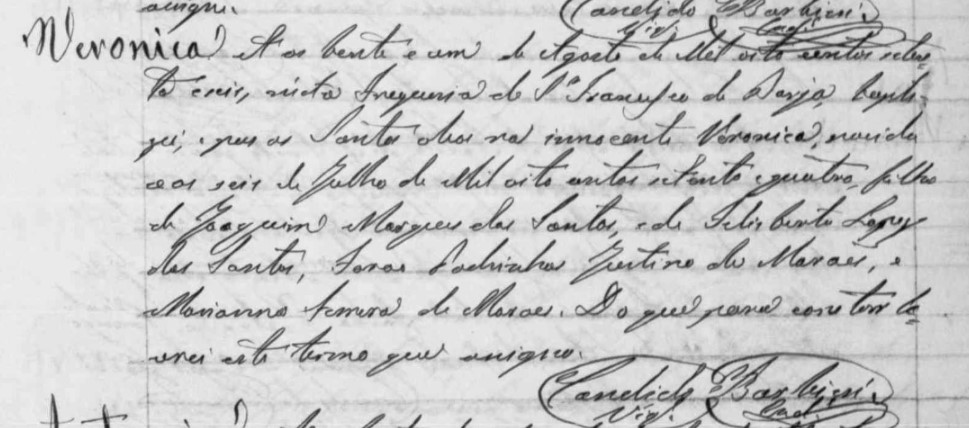 assigno. Candido Barbieri
Vig.
Veronica Aos bente e um de Agosto de Mil oito centos seten-
ta e seis, nésta Freguesia de Sm. Francisco de Borja, bapti-
zei, e pus os Santos oleos na innocente Veronica, nascida
aos seis de Julho de Mil oito centos setenta e quatro, filha
de Joaquim Marques dos Santos, e de Felisberta Lopes
dos Santos, Foraõ Padrinhos Justino de Moraes, e
Marianna de Moraes. Do que para constar la-
vrei este termo que assigno.
Candido Barbieri
Vig.